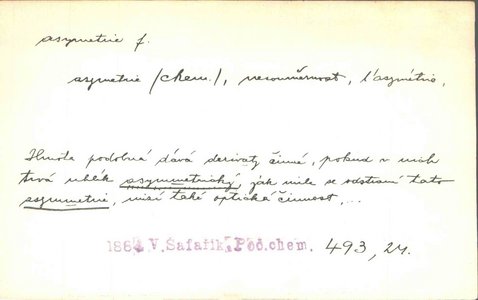 asymetrie f.
asymetrie /chem./, nesouměrnost, l'asymétrie,
Hmota podobná dává derivaty činné, pokud v nich
trvá uhlík asymmetrický, jak mile se odstraní tato
asymmetrie, mizí také optická činnost...
1862 V.Šafařík, Poč.chem. 493, 24.